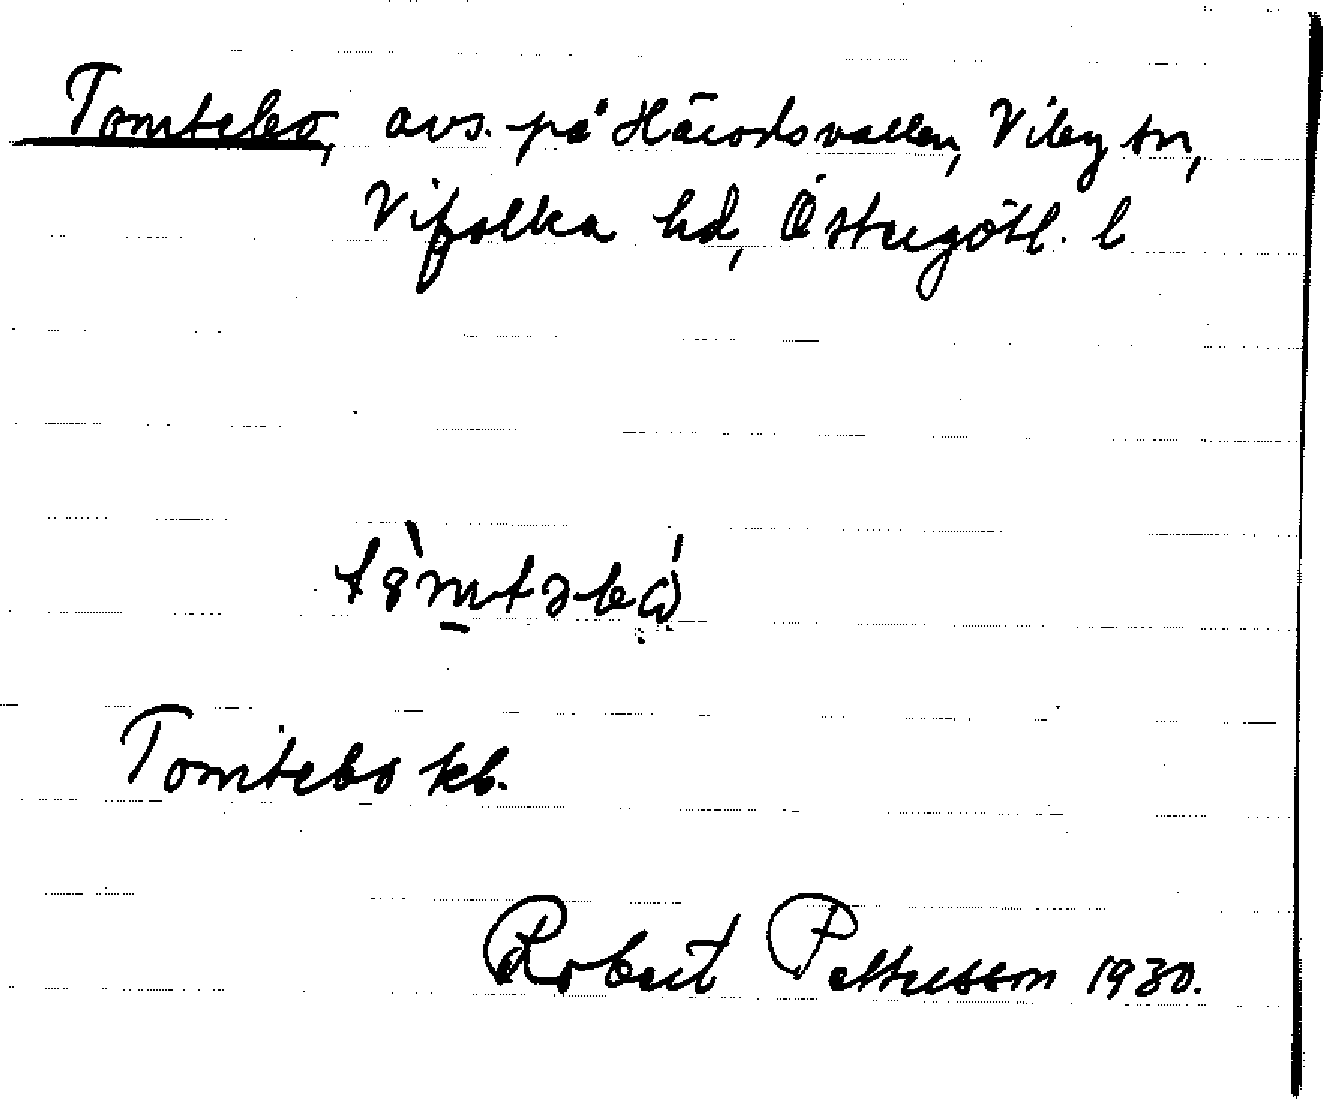 Tomtebo, avs. på Häradsvallen, Viby sn,
Vifolka hd, Östergötl. l
Tomtebo kb.
Robert Pettersson 1930.